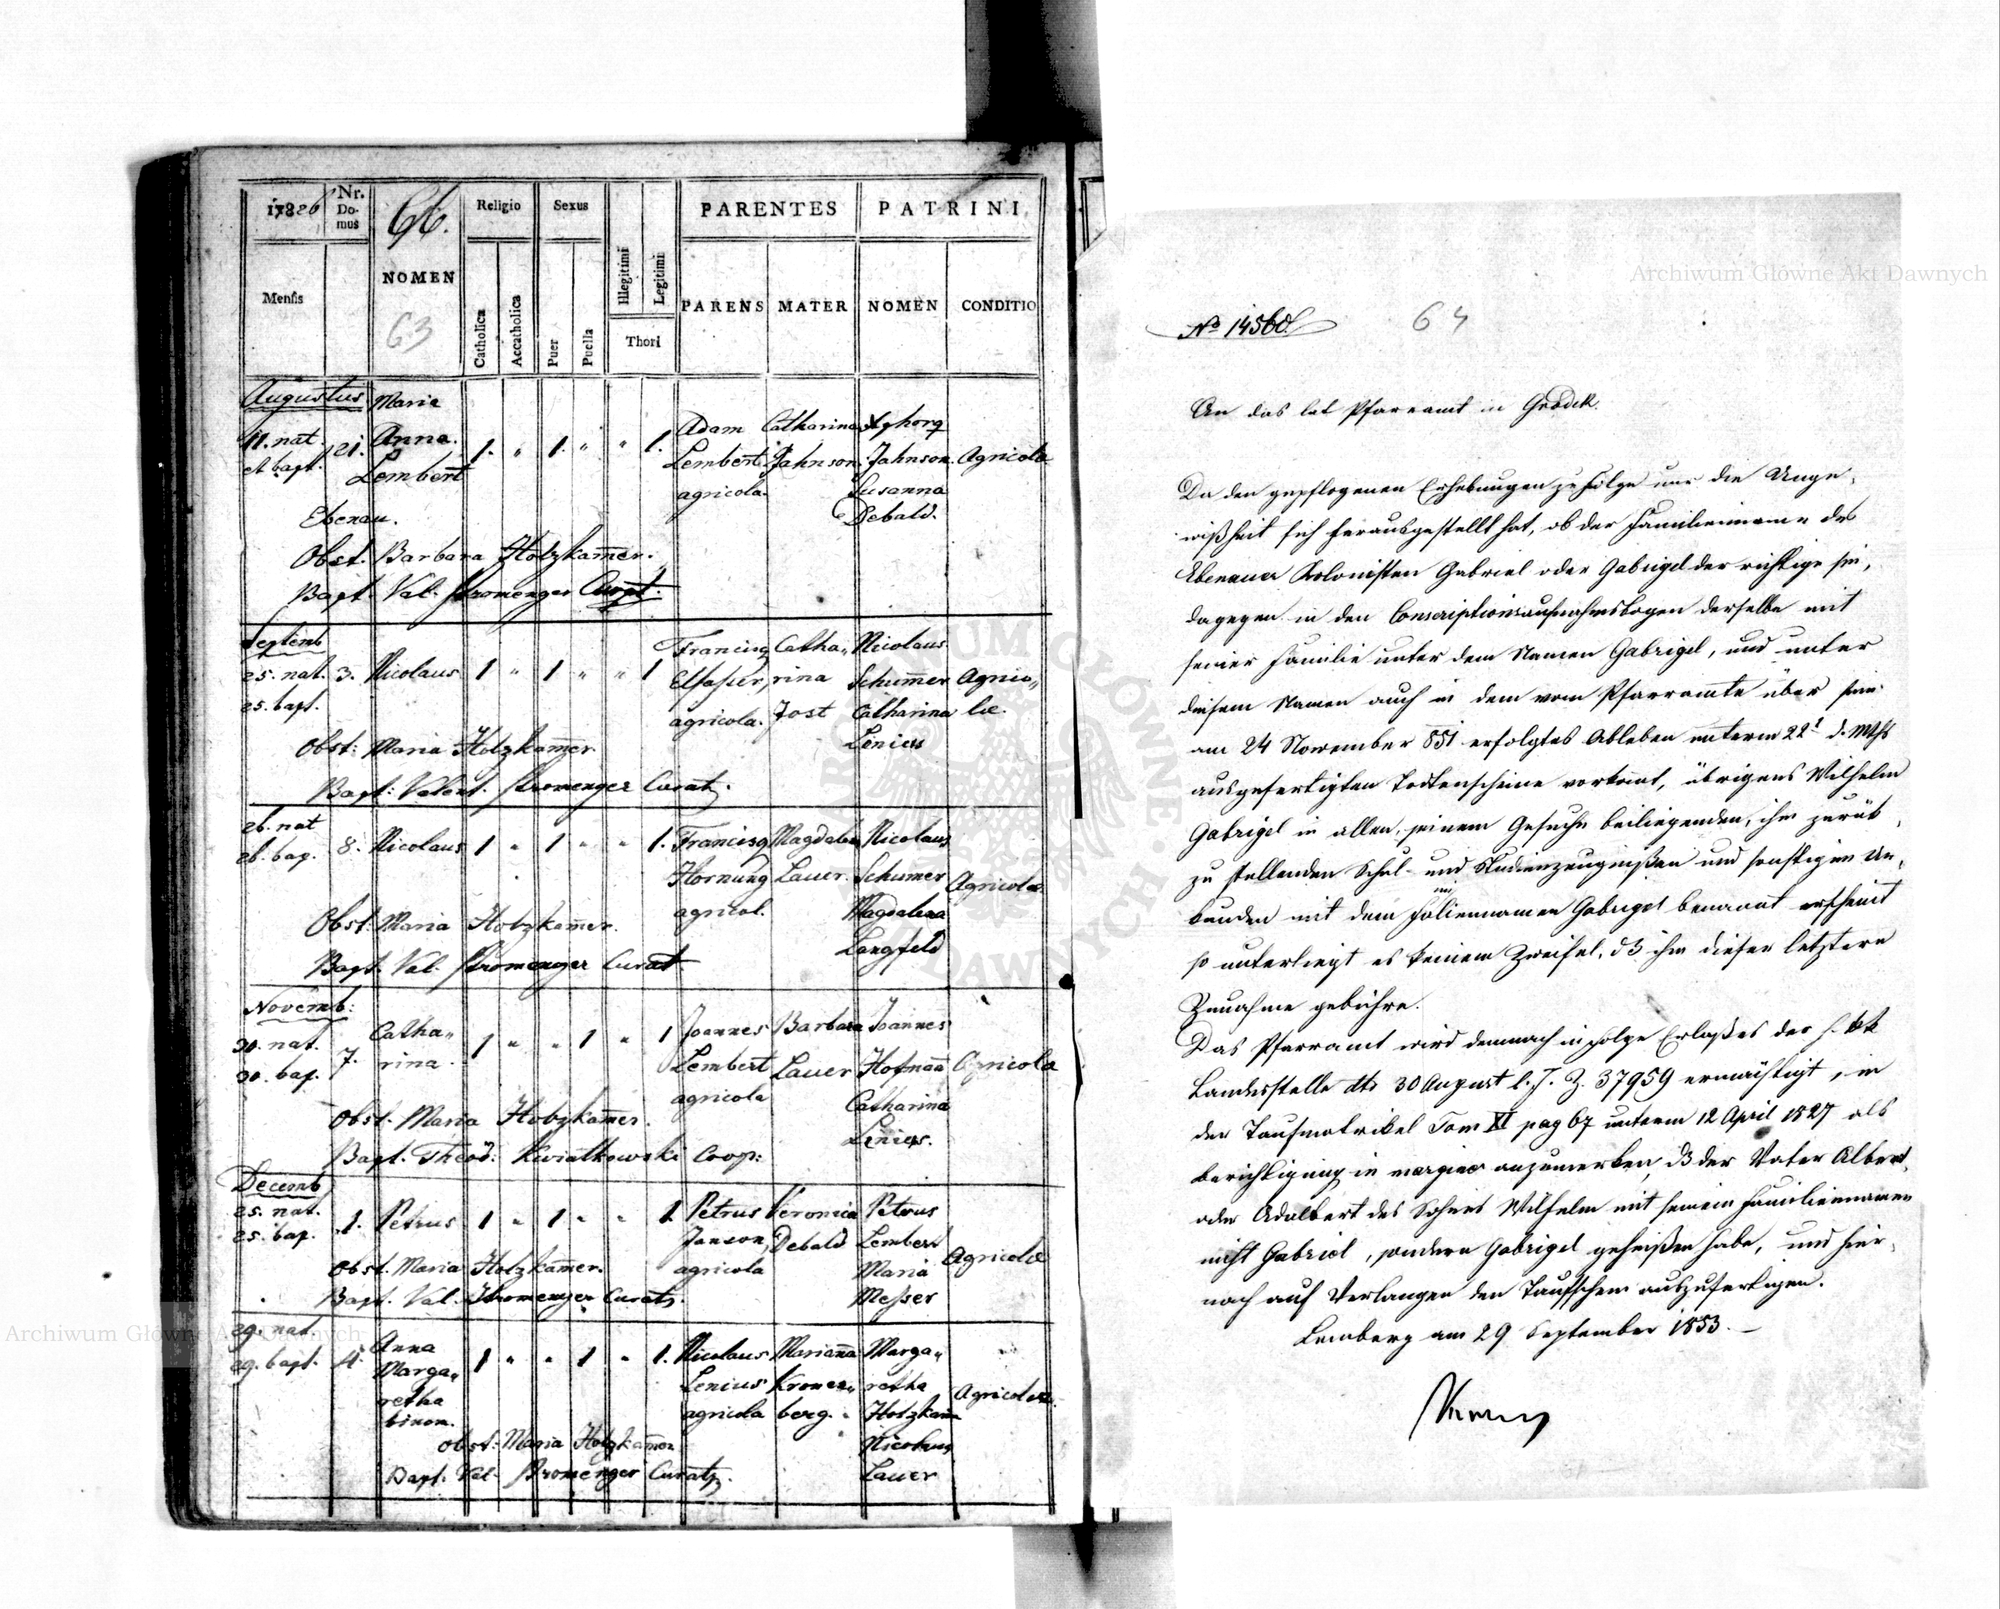 1826
Nr. Domus
66.
Religio
Sexus
Illegitimi
Legitimi
PARENTES
PATRINI
Mensis
NOMEN
63
Catholica
Accatholica
Puer
Puella
Thori
PARENS
MATER
NOMEN
CONDITIO
Augustus Maria
11. nat. 21. Anna 1. " 1. " " 1. Adam Catharina
et bapt. Lembert Lembert Jahnson Jahnson Agricola
agricola. Susanna
Ebenau. Debald.
Obst. Barbara Holzkam̄er.
Bapt. Val. Stromenger Curat.
Septemb
25. nat. 3. Nicolaus 1 " 1 " " 1 Francisq Catha„ Nicolaus
25. bapt. Elsasser, rina Schum̄er Agrico„
agricola. Jost Catharina læ.
Obst: Maria Holzkam̄er Lenius
Bapt: Valent. Stromenger Curat.
26. nat
26. bap. 8. Nicolaus 1 " 1 " " 1. Francisq Magdalen Nicolaus
Hornung Lauer. Schumer Agricolæ
agricol. Magdalena
Obst: Maria Holzkam̄er. Langfeld
Bapt. Val. Stromenger Curat
Novemb:
30. nat. Catha„ Joannes Barbara Joannes
30. bap. 7. rina. 1 " " 1 " 1 Lembert Lauer Hofman̄ Agricola
agricola Catharina
Obst. Maria Holzkam̄er. Lenius.
Bapt. Theod: Kwiatkowski Coop:
Decemb
25. nat. Petrus Veronica Petrus
25. bap. 1. Petrus 1 " 1 " " 1. Janson, Debald Lembert Agricolæ
Obst. Maria Holzkam̄er. agricola Maria
Bapt. Val. Stromenger Curat. Messer
29. nat. Anna Nicolaus Marian̄a Marga„
29. bapt. 4. Marga„ 1 " " 1 " 1. Lenius Kronen„ retha Agricolæ
retha agricola berg. Holzkam̄
binom. Nicolaus
Obst: Maria Holzkam̄er Lauer
Bapt. Val. Stromenger Curat.
No 14560
64
An das lat Pfarramt in Grodek.
Da den gepflogenen Erhebungen zu Folge nur die Unge„
wißheit sich herausgestellt hat, ob der Familienname des
Ebenauer Kolonisten Gabriel oder Gabrigel der richtige sei,
dagegen in den Conscriptionsaufnahmsbogen derselbe mit
seiner Familie unter dem Namen Gabrigel, und unter
diesem Namen auch in dem vom Pfarramte über sein
am 24 November 851 erfolgtes Ableben unterm 22t d. Mts
ausgefertigten Todtenscheine vorkomt, übrigens Wilhelm
Gabrigel in allen, seinem Gesuche beiliegenden, ihm zurük
zu stellenden Schul- und Studienzeugnißen und sonstigen Ur„
kunden mit dem Familiennamen Gabrigel benannt erscheint
so unterliegt es keinem Zweifel, dß ihm dieser letztere
Zunahme gebühre.
Das Pfarramt wird demnach in folge Erlaßes der h. kk
Landesstelle dto 30 August l. J. Z. 37959 ermächtigt, in
der Taufmatrikel Tom XI pag 67 unterm 12 April 1827 als
berichtigung in margine anzumerken, dß der Vater Albert
oder Adalbert des Sohnes Wilhelm mit seinem Familiennamen
nicht Gabriel, sondern Gabrigel geheißen habe, und hier„
nach auf Verlangen den Taufschein auszufertigen.
Lemberg am 29 September 1853.
Archiwum Główne Akt Dawnych
Archiwum Główne Akt Dawnych
ARCHIWUM GŁÓWNE AKT DAWNYCH